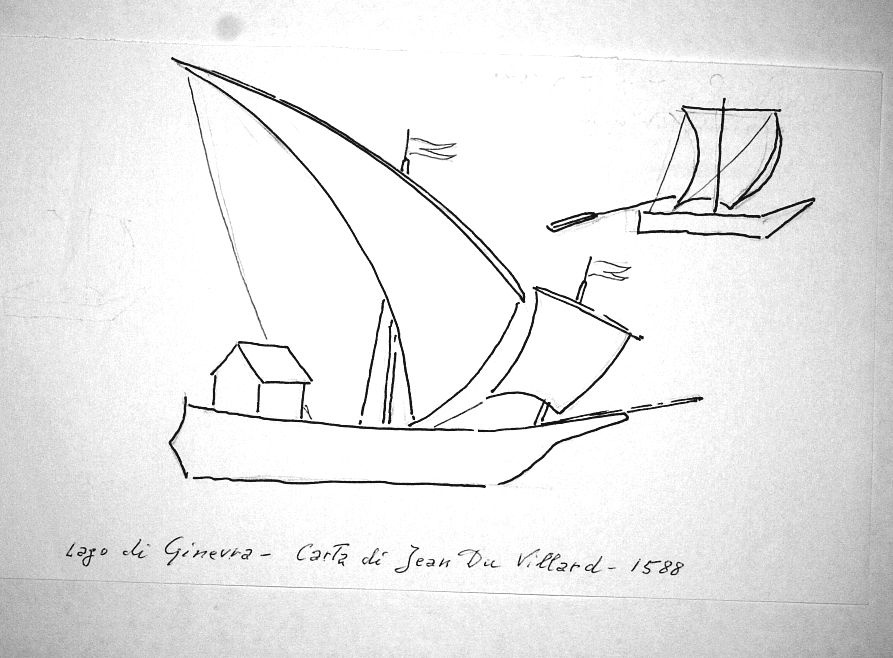 Lago di Ginevra - Carta di Jean Du Villard - 1588